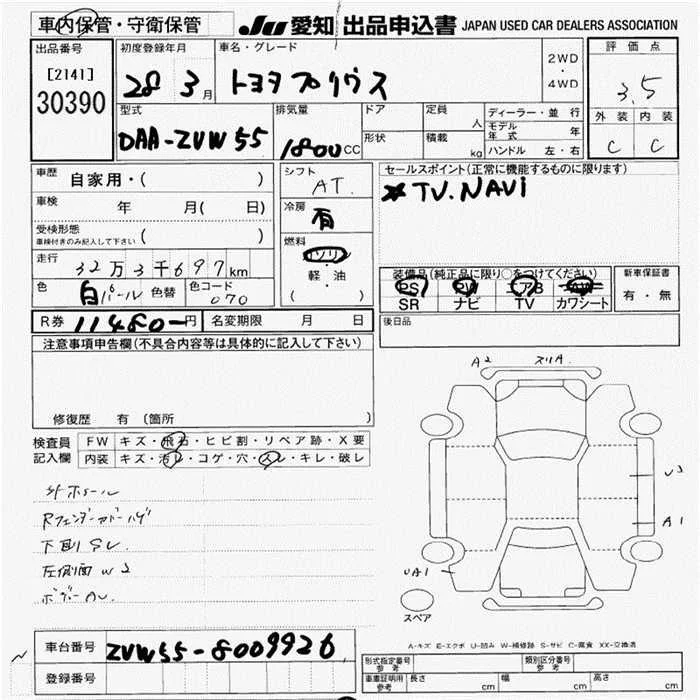 車内保管・守衛保管
JU 愛知 出品申込書 JAPAN USED CAR DEALERS ASSOCIATION
出品番号
[2141]
30390
初度登録年月
28 3月
車名・グレード
トヨタプリウス
2WD
・
4WD
評価点
3.5
外装 内装
C C
型式
DAA-ZVW55
排気量
1800CC
ドア
形状
定員
人
積載
kg
ディーラー・並行
モデル年式 年
ハンドル 左・右
車歴 自家用・( )
車検 年 月( 日)
受検形態
車検付きのみ記入して下さい ( )
走行
32万3千697km
色 白パール 色替 色コード 070
シフト
AT.
冷房
有
燃料
ガソリン
軽・油
( )
セールスポイント(正常に機能するものに限ります)
*TV.NAVi
装備品(純正品に限り○をつけてください)
PS PW エアB AW
SR ナビ TV カワシート
新車保証書
有・無
R券 11480-円 名変期限 月 日
後日品
注意事項申告欄(不具合内容等は具体的に記入して下さい)
修復歴 有 (箇所 )
検査員記入欄
FW キズ・飛石・ヒビ割・リペア跡・X要
内装 キズ・汚レ・コゲ・穴・スレ・キレ・破レ
Rフェンダーカバーハゲ
下廻りSレ
左側面W2
A2 スリA.
A1
UA1
スペア
A-キズ E-エクボ U-凹み W-補修跡 S-サビ C-腐食 XX-交換済
車台番号 ZVW55-8009926
登録番号
形式指定番号
参考
類別区分番号
参考
車庫証明用
参考
長さ cm 幅 cm 高さ cm